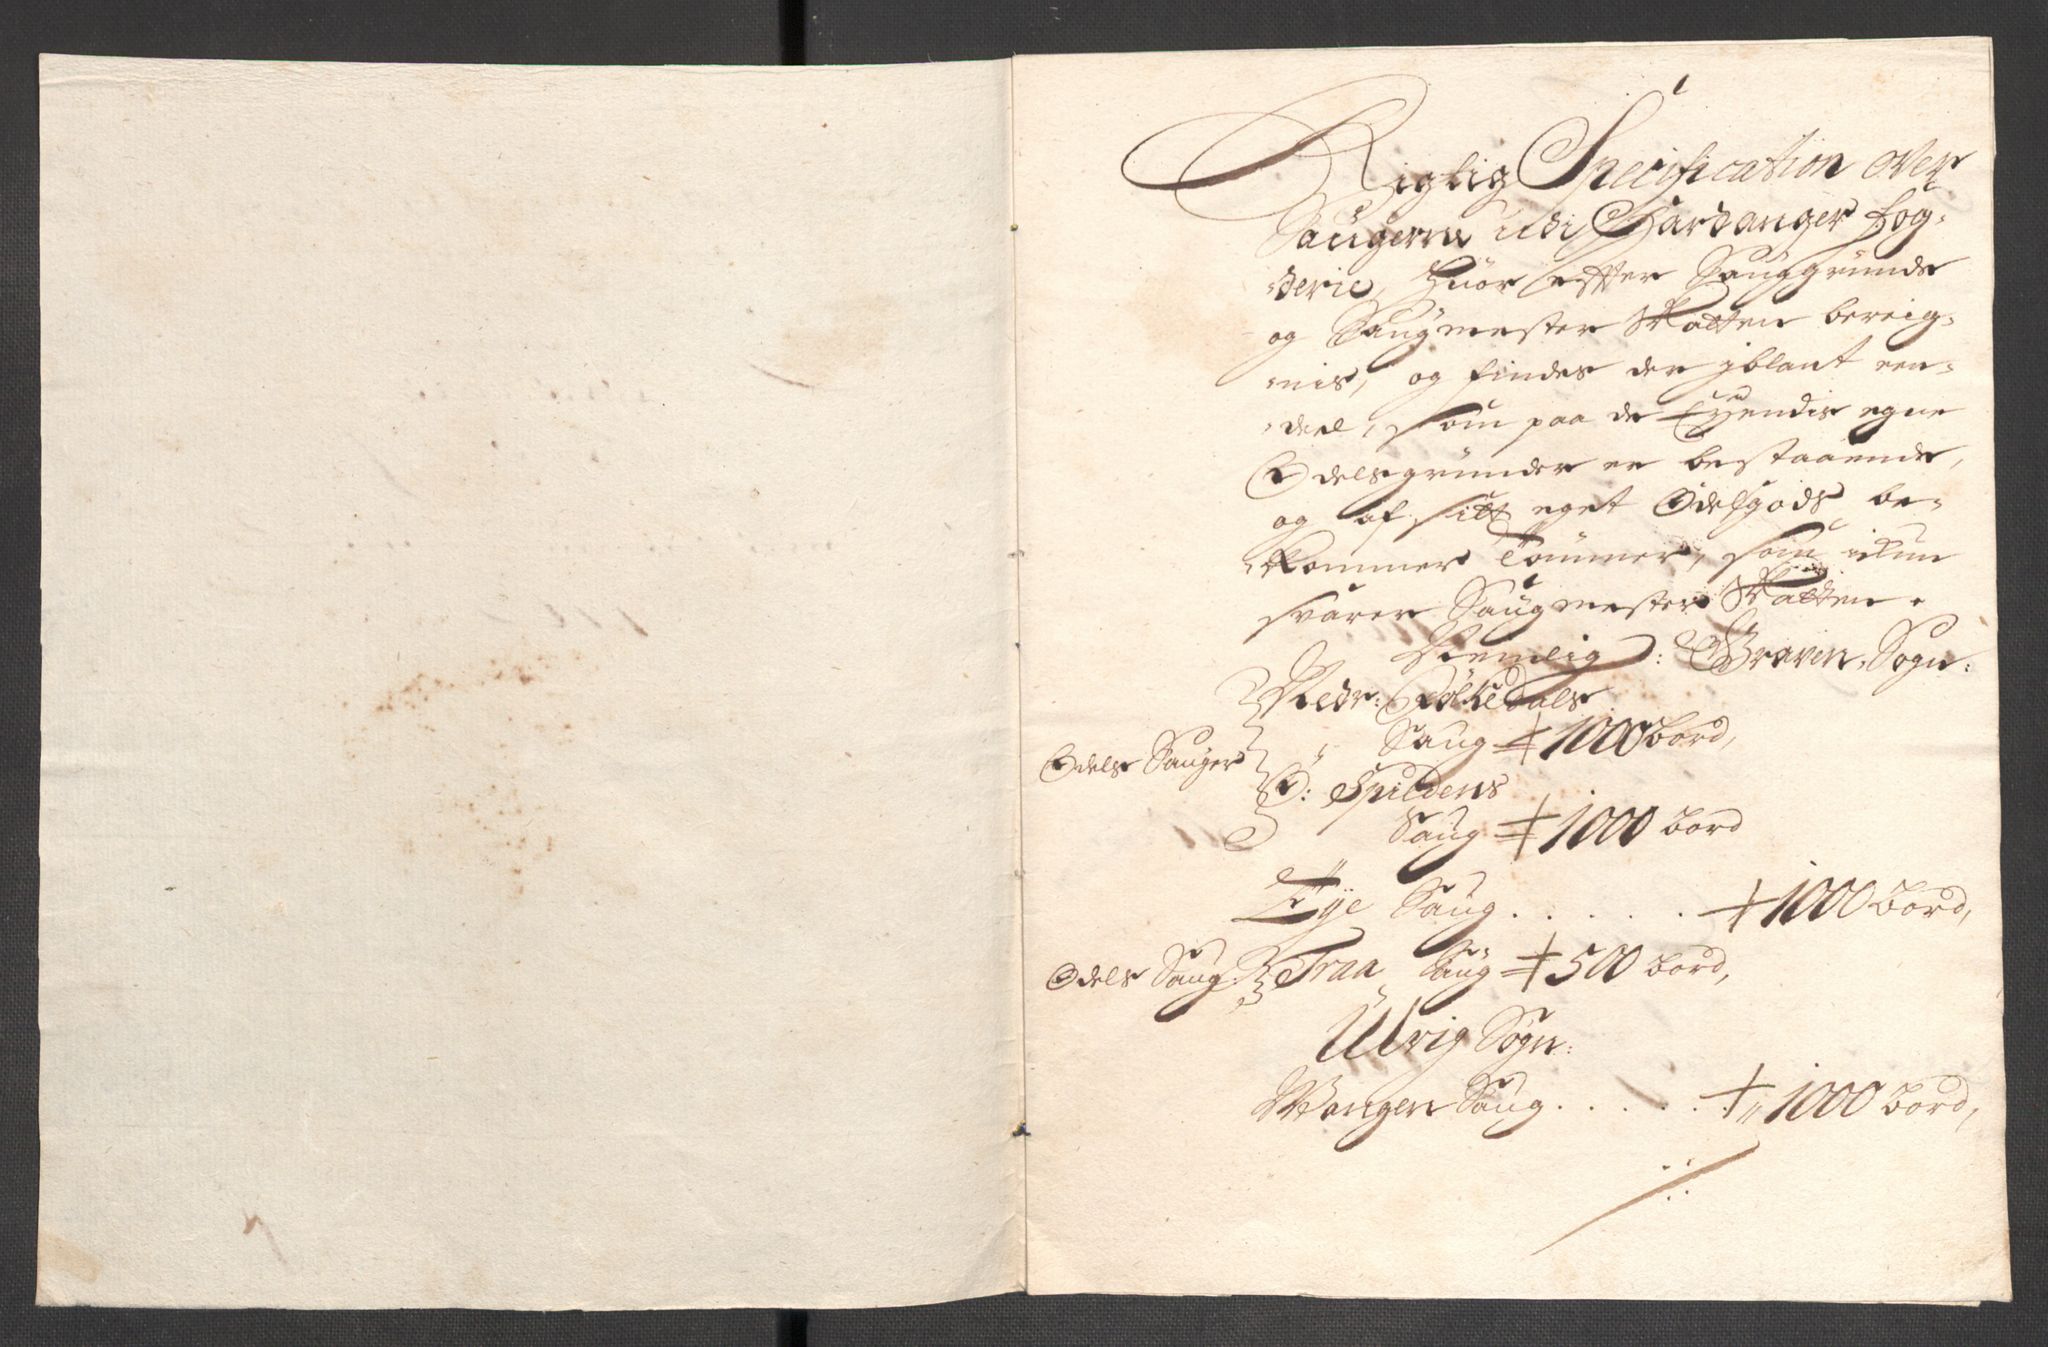 Rigtig Specification over
Saugerne udi Hardanger Fog-
derie, huor efter Sauggrunds
og Saugmester Skatten bereig-
nis, og findes der jblant een-
deel, som paa de Eyendis egne
Odelsgrunder er bestaaende,
og af sitt eget Odelsgods be-
kommer Tømmer, som ikun
svarer Saugmester Skatten.
Nemlig: Graven, Sogn:
Nedr: Følkedals
Odels Sauger
Saug 1000 bord,
O: Spildens
Saug 1000 bord
Eye Saug . . . . . 1000 bord,
Odels Saug: Traa Saug 500 bord,
Ulvig Sogn:
Wangen Saug . . . . . 1000 bord,